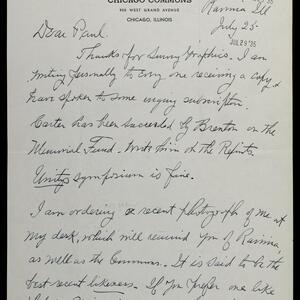 CHICAGO COMMONS
955 WEST GRAND AVENUE
CHICAGO, ILLINOIS
Ravinia Ill
July 25-
JUL 29 '35
Dear Paul.
Thanks for Survey Graphics. I am
writing personally to every one receiving a copy &
have spoken to some urging subscription.
Carter has been succeeded by Brenton on the
Memorial Fund. Write him on the Reprints.
Unity symposium is fine.
I am ordering a recent photograph of me at
my desk, which will remind you of Ravinia,
as well as the Commons. It is said to be the
best recent likeness. If you prefer one like